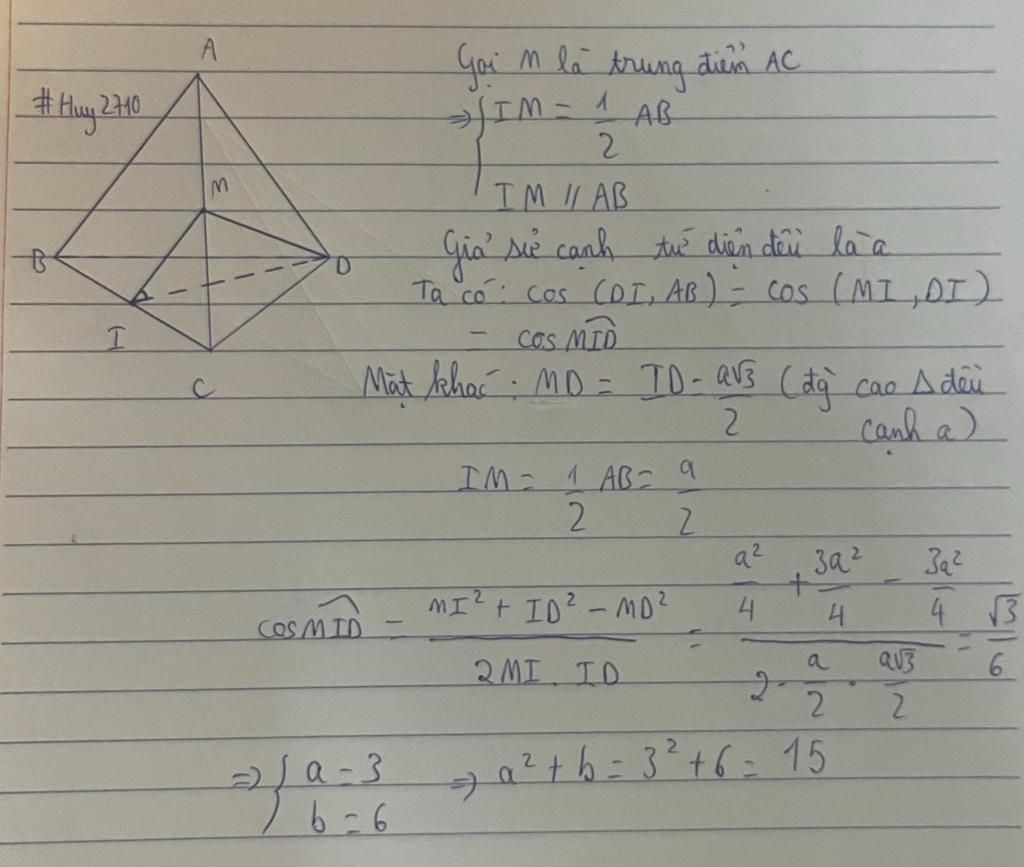 A
#Huy2710
M
B
D
I
C
Gọi M là trung điểm AC
⇒ { IM = 1/2 AB
IM // AB
Giả sử cạnh tứ diện đều là a
Ta có: cos (DI, AB) = cos (MI, DI)
= cos MID
Mặt khác: MD = ID = a√3/2 (đg cao Δ đều
cạnh a)
IM = 1/2 AB = a/2
cos MID = (MI² + ID² - MD²)/(2MI. ID) = (a²/4 + 3a²/4 - 3a²/4)/(2 · a/2 · a√3/2) = √3/6
⇒ { a = 3 ⇒ a² + b = 3² + 6 = 15
b = 6